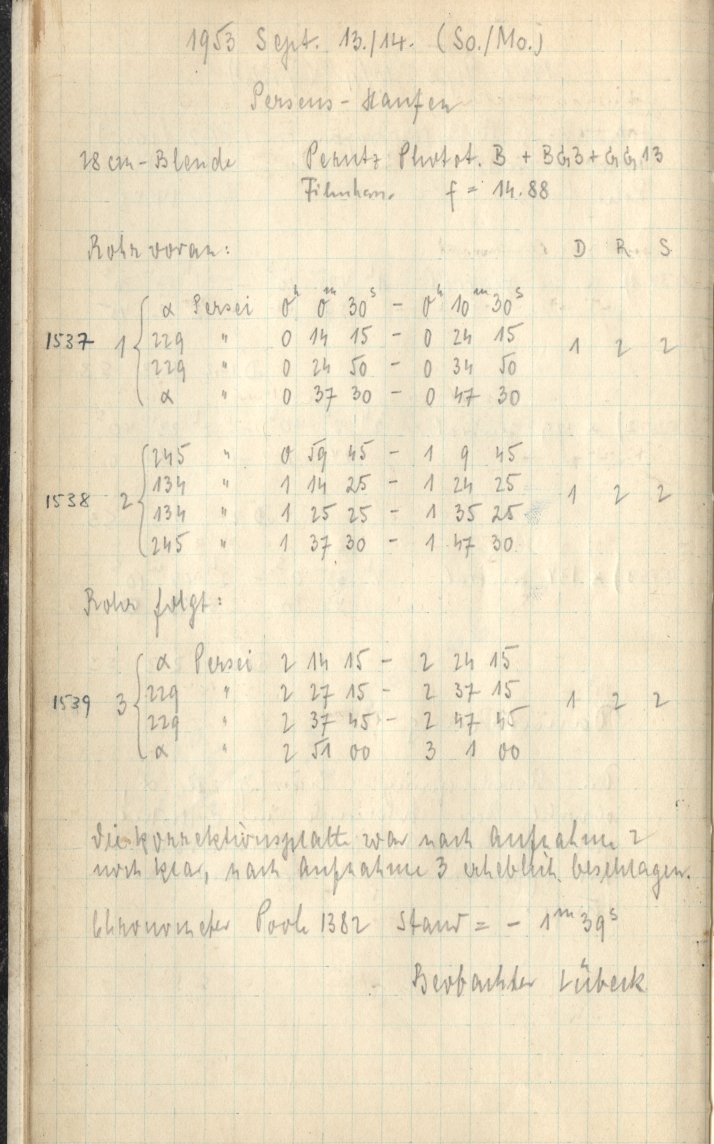 1953 Sept. 13./14. (So./Mo.)
Perseus-Haufen
28 cm-Blende Perutz Phototh. B + BG3 + GG13
f = 14.88
Rohr voran:
D R S
1537 1 α Persei 0h 0m 30s - 0h 10m 30s
229 " 0 14 15 - 0 24 15 1 2 2
229 " 0 24 50 - 0 34 50
α " 0 37 30 - 0 47 30
245 " 0 59 45 - 1 9 45
1538 2 134 " 1 14 25 - 1 24 25 1 2 2
134 " 1 25 25 - 1 35 25
245 " 1 37 30 - 1 47 30
Rohr folgt:
α Persei 2 14 15 - 2 24 15
1539 3 229 " 2 27 15 - 2 37 15 1 2 2
229 " 2 37 45 - 2 47 45
α " 2 51 00 3 1 00
Die Korrektionsplatte war nach Aufnahme 2
noch klar, nach Aufnahme 3 erheblich beschlagen.
Chronometer Poole 1382 Stand = - 1m 39s
Beobachter Lübeck